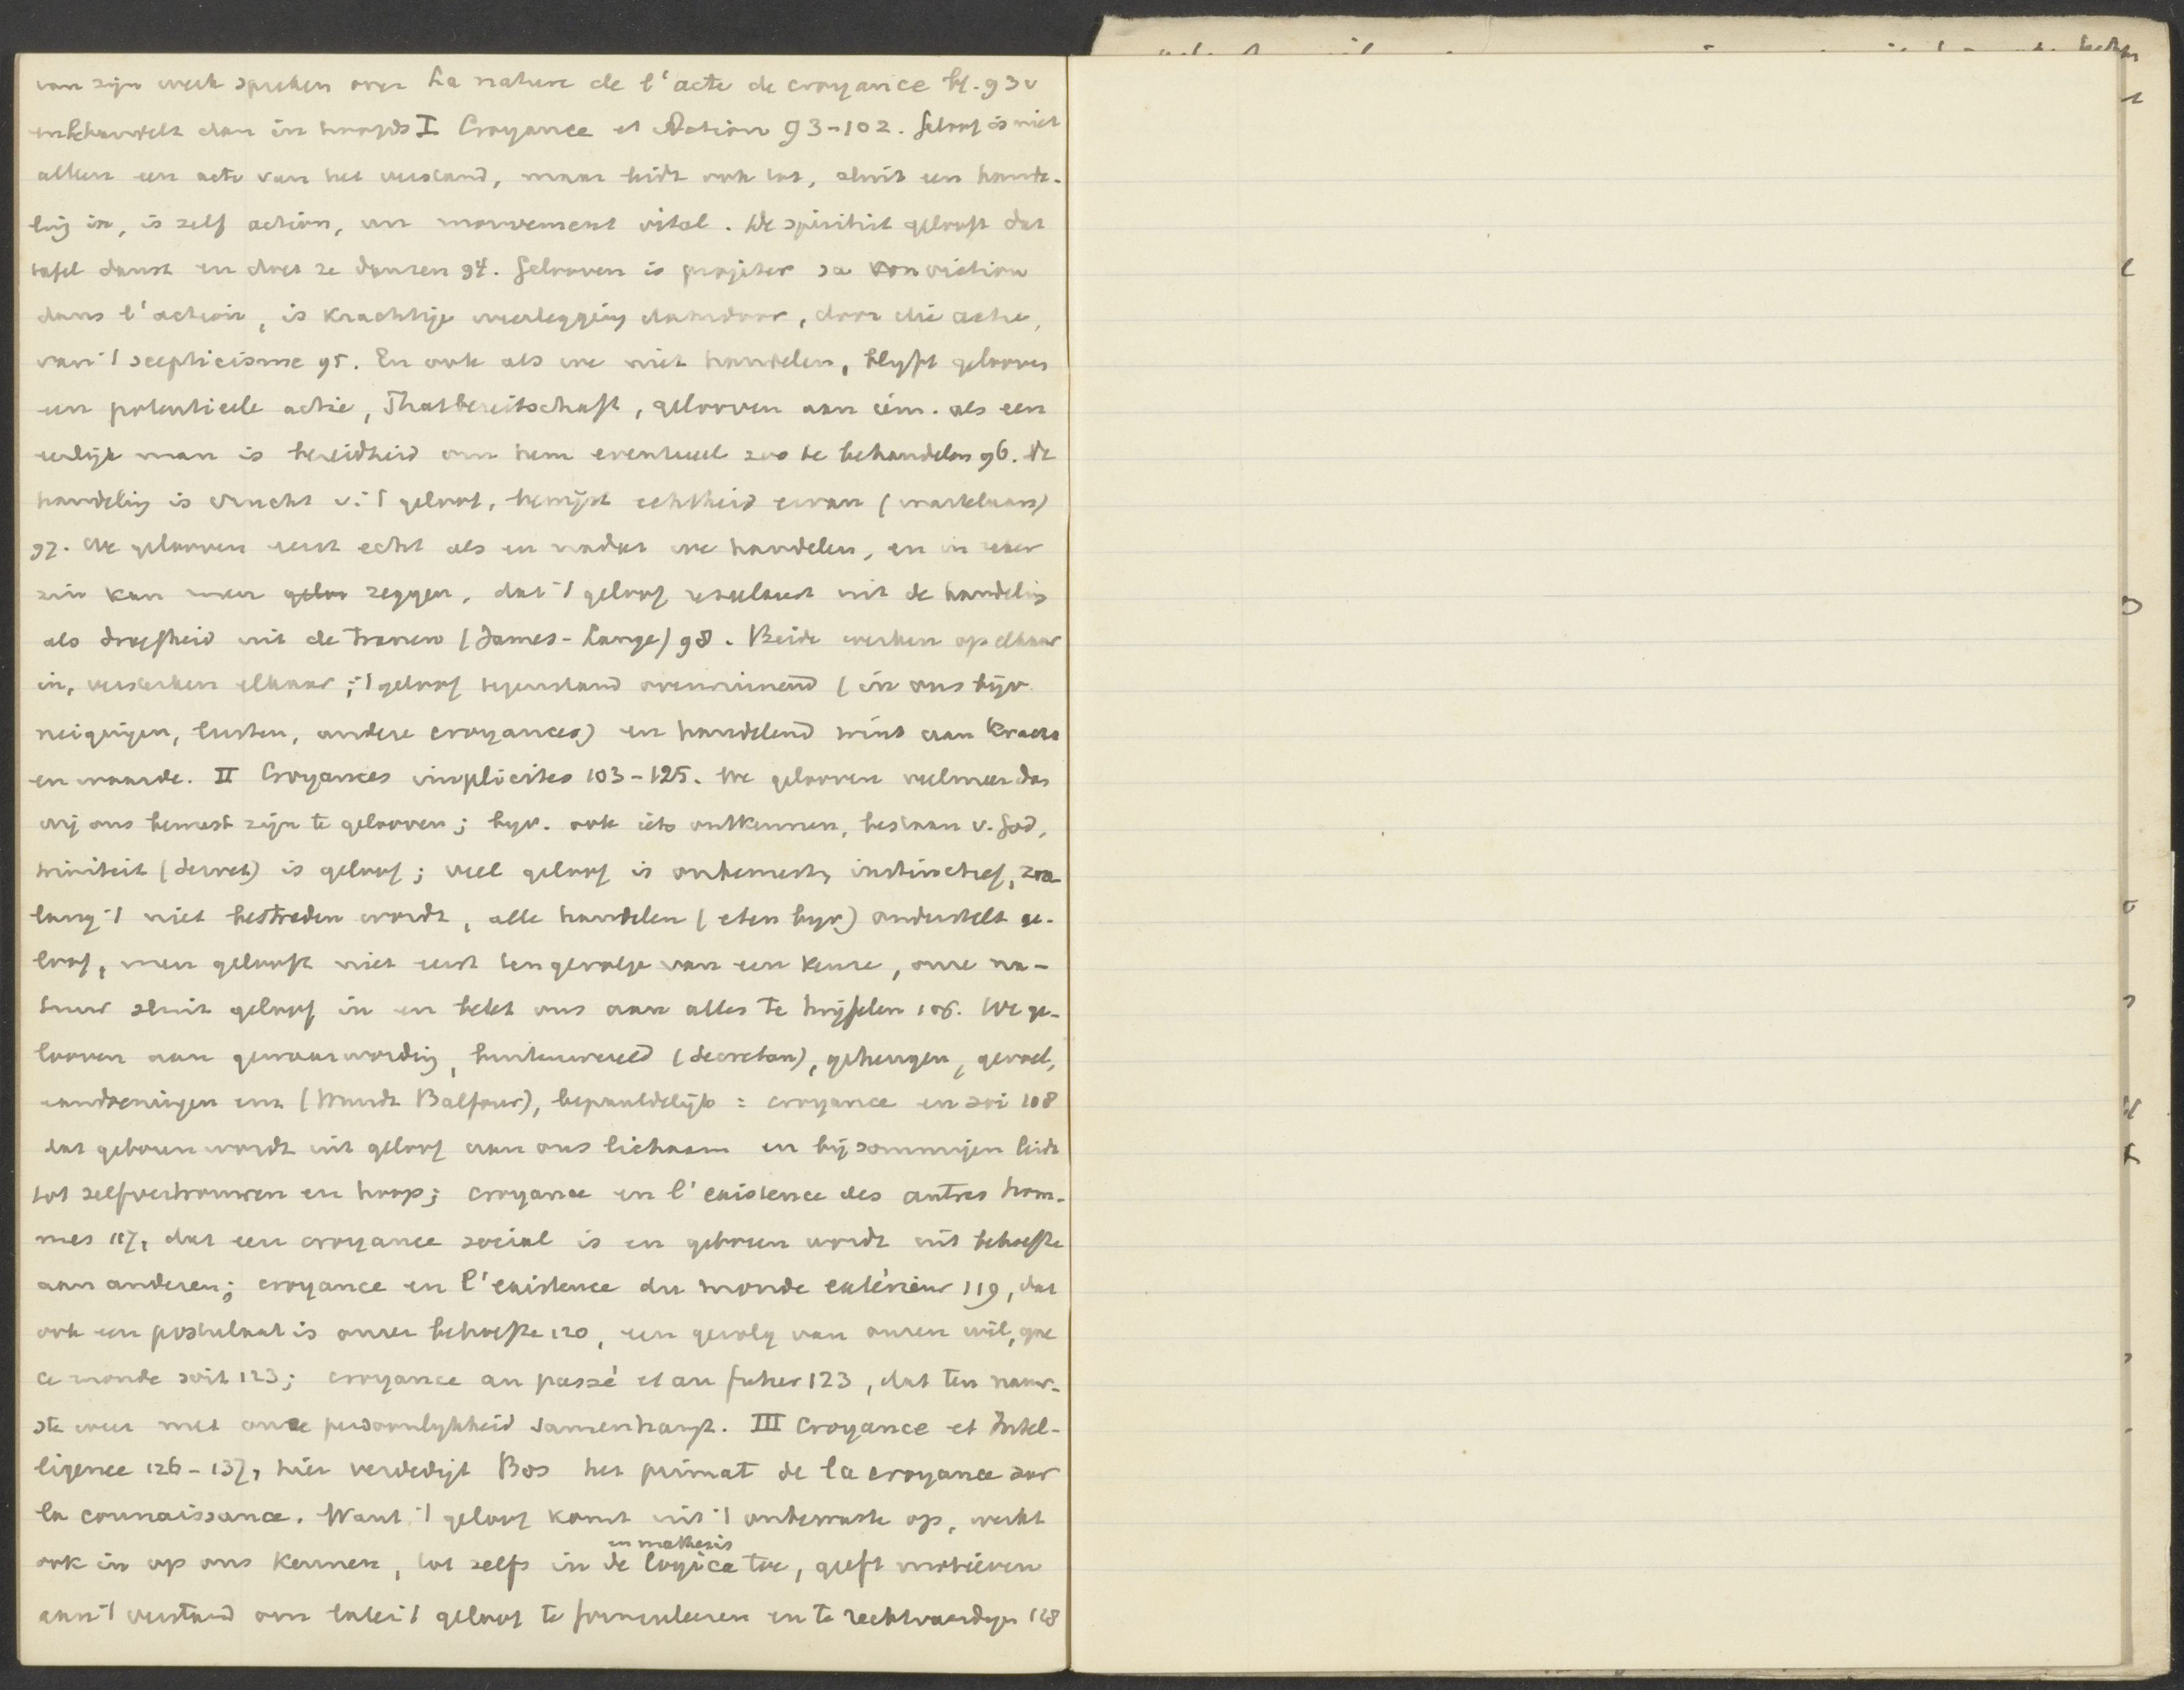 van zijn werk spreken over La nature de l'acte de croyance bl. 93v
en behandelt dan in hoofds I Croyance et Action 93-102. Geloof is niet
alleen een acte van het verstand, maar leidt ook tot, sluit een hande-
ling in, is zelf action, un mouvement vital. De spiritist gelooft dat
tafel danst en doet ze dansen 94. Gelooven is projeter sa conviction
dans l'action, is krachtige weerlegging daardoor, door die actie,
van 't scepticisme 95. En ook als we niet handelen, blyft gelooven
een potentieele actie, Thatbereitschaft, gelooven aan iem. als een
eerlijk man is bereidheid om hem eventueel zoo te behandelen 96. De
handeling is vrucht v. 't geloof, bewijst echtheid ervan (martelaars)
97. We gelooven eerst echt als en nadat we handelen, en in zeker
zin kan men geloo zeggen, dat 't geloof resulteert uit de handeling
als droefheid uit de tranen (James-Lange) 98. Beide werken op elkaar
in, versterken elkaar; 't geloof tegenstand overwinnend (in ons bijv.
neigingen, lusten, andere croyances) en handelend wint aan kracht
en waarde. II Croyances implicites 103-125. We gelooven veel meer dan
wij ons bewust zijn te gelooven; byv. ook iets ontkennen, bestaan v. God,
triniteit (Secret) is geloof; veel geloof is onbewust, instinctief, zoo-
lang 't niet bestreden wordt, alle handelen (eten byv) onderstelt ge-
loof, men gelooft niet eerst tengevolge van een keuze, onze na-
tuur sluit geloof in en belet ons aan alles te twijfelen 106. We ge-
looven aan gewaarwording, buitenwereld (Secretan), geheugen, gevoel,
aandoeningen enz (Wundt Balfour), bepaaldelijk: croyance en soi 108
dat geboren wordt uit geloof aan ons lichaam en bij sommigen leidt
tot zelfvertrouwen en hoop; croyance en l'existence des autres hom-
mes 117, dat een croyance social is en geboren wordt uit behoefte
aan anderen; croyance en l'existence du monde extérieur 119, dat
ook een postulaat is onzer behoefte 120, een gevolg van onzen wil, que
ce monde soit 123; croyance au passé et au futur 123, dat ten nauw-
ste weer met onze persoonlykheid samenhangt. III Croyance et Intel-
ligence 126-137, hier verdedigt Bos het primat de la croyance sur
la connaissance. Want 't geloof komt uit 't onbewuste op, werkt
en mathesis
ook in op ons kennen, tot zelfs in de logica toe, geeft motieven
aan 't verstand om later 't geloof te formuleeren en te rechtvaardigen 128